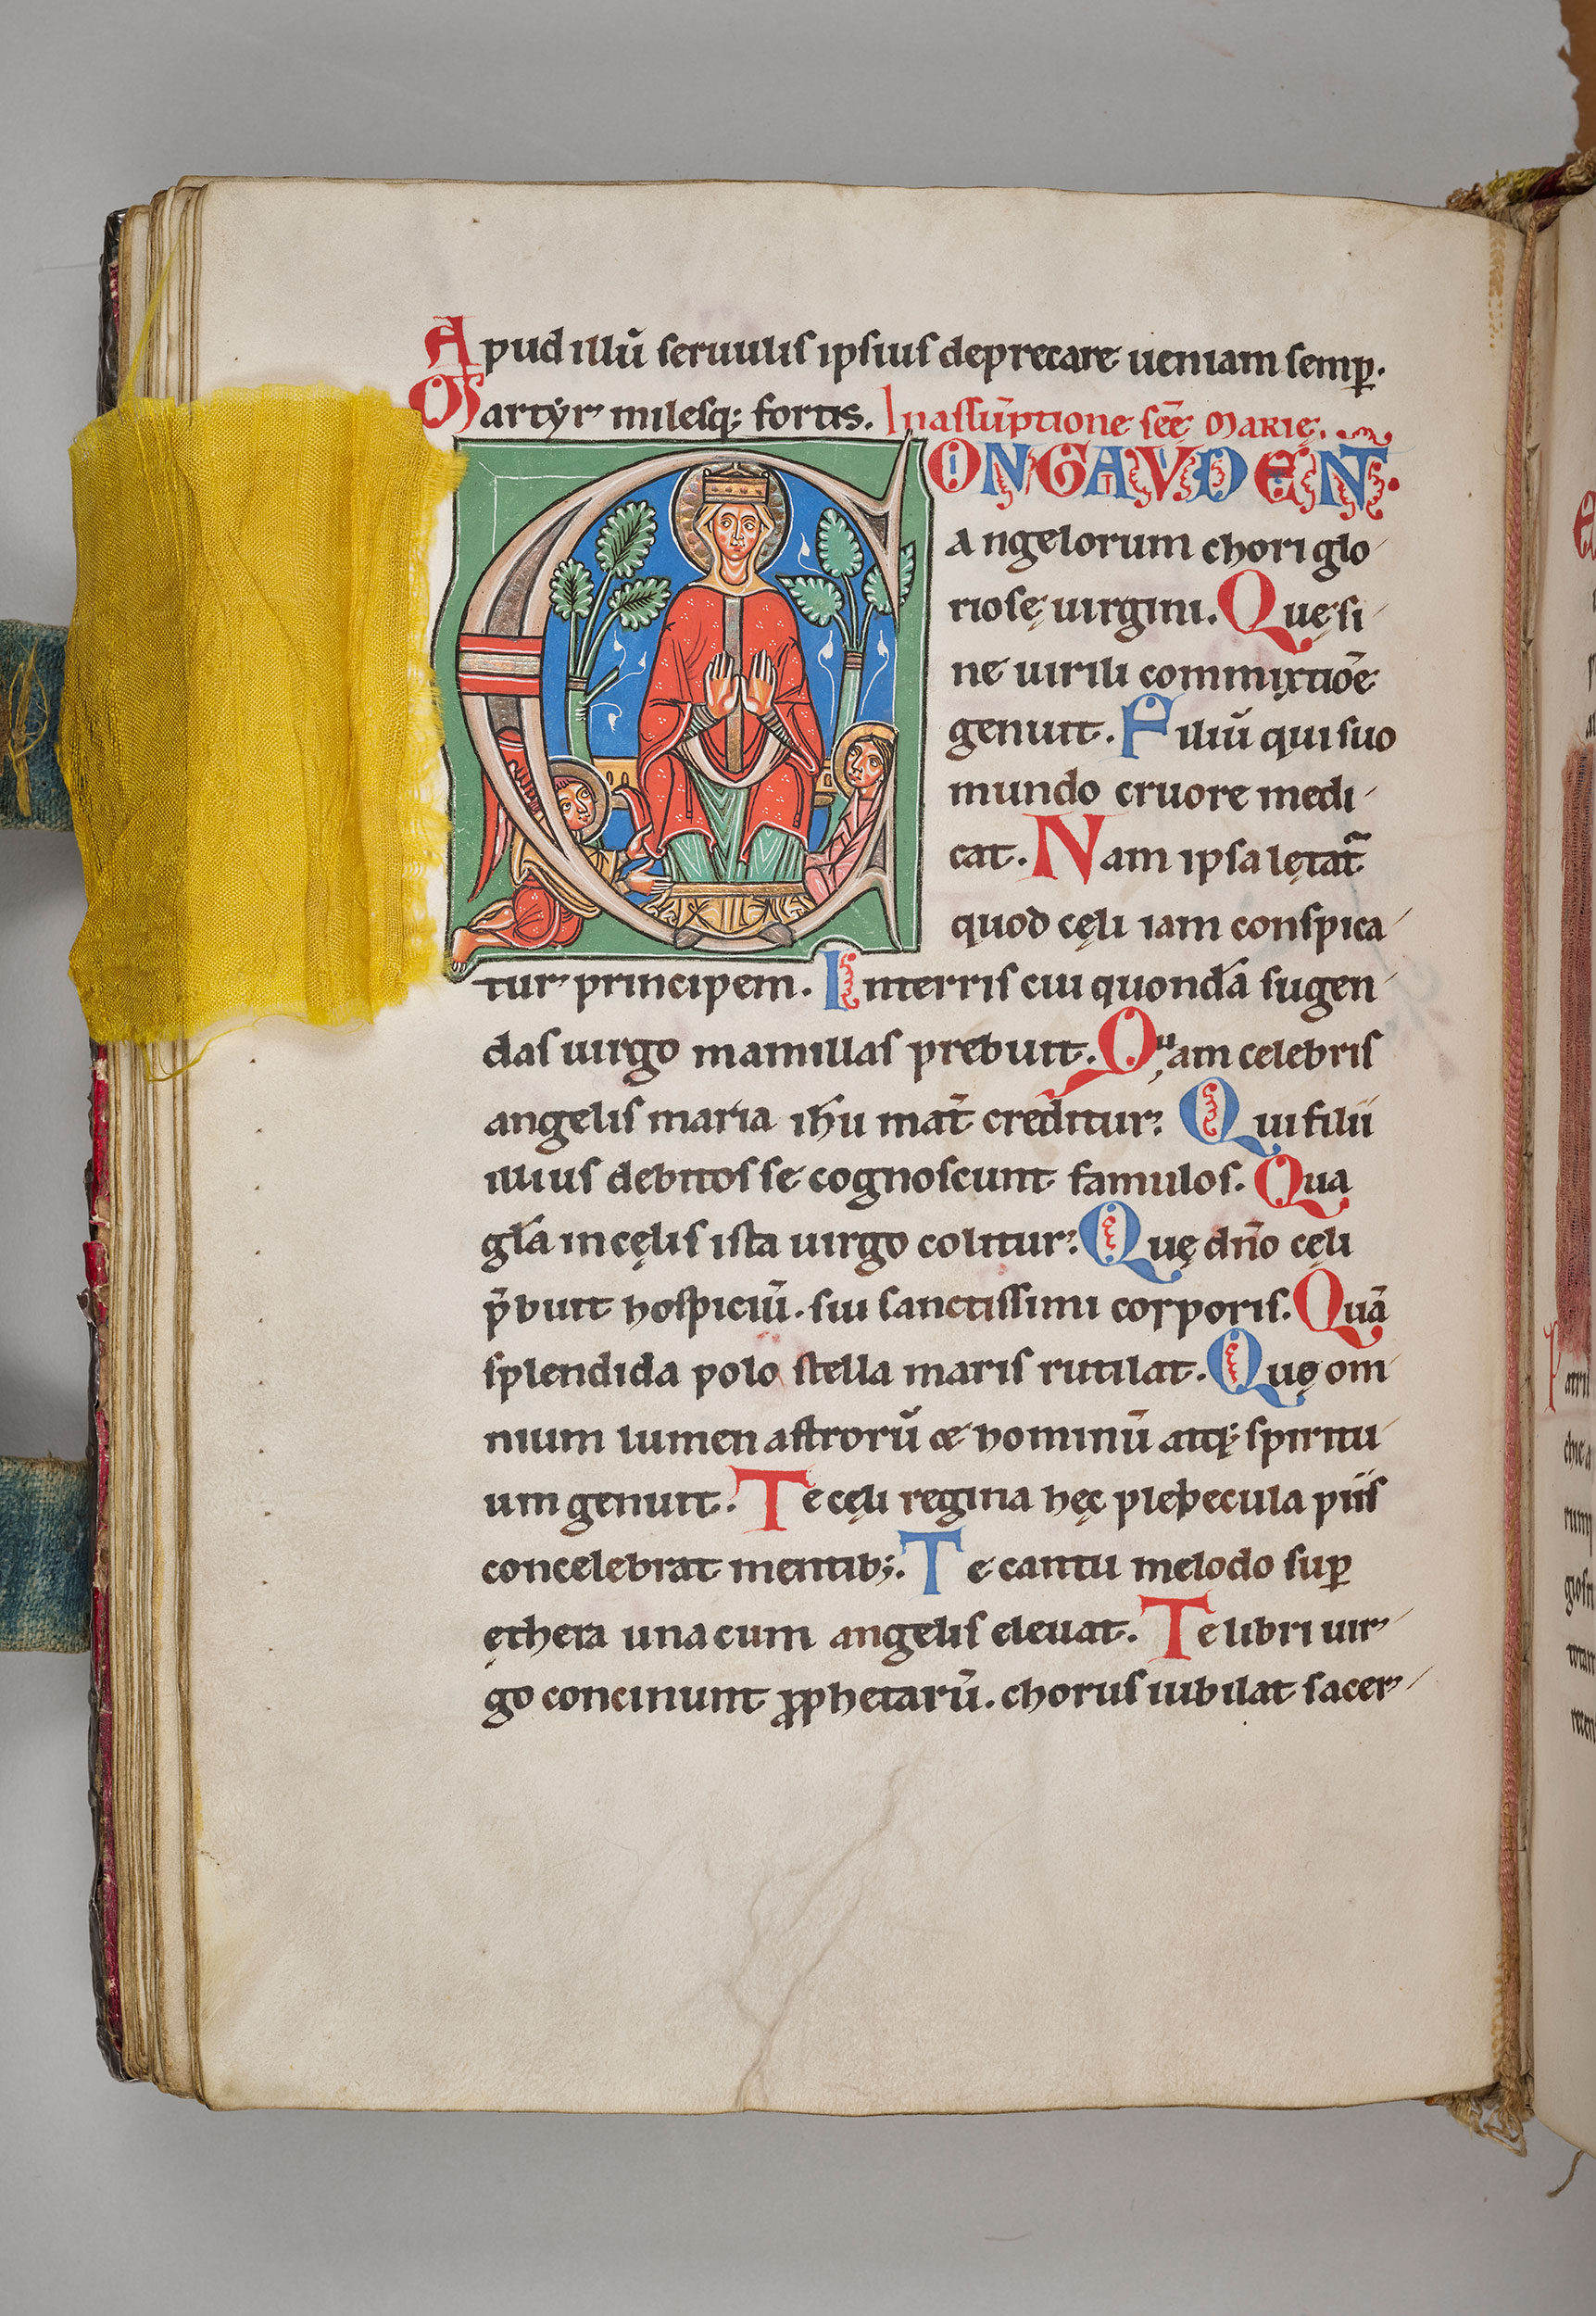 Apud illū seruulis ipsius deprecare ueniam semꝑ.
Martyr milesq; fortis. In assūptione scē Marie.
CONGAVDENT
angelorum chori glo
riosę uirgini. Quę si
ne uirili commixtiōe
genuit. Filiū qui suo
mundo cruore medi
cat. Nam ipsa lętat᷑
quod cęli iam conspica
tur principem. In terris cui quondā sugen
das uirgo mamillas prebuit. Quam celebris
angelis maria ihū mat̄ creditur; Qui filii
illius debitos se cognoscunt famulos. Qua
gła in cęlis ista uirgo colitur; Quę dn̄o cęli
p̄buit hospiciū. sui sanctissimi corporis. Quā
splendida polo stella maris rutilat. Quę om
nium lumen astrorū & hominū atq; spiritu
um genuit. Te cęli regina hęc plebecula piis
concelebrat mentib;. Te cantu melodo suꝑ
ęthera una cum angelis eleuat. Te libri uir
go concinunt ꝓphetarū. chorus iubilat sacer